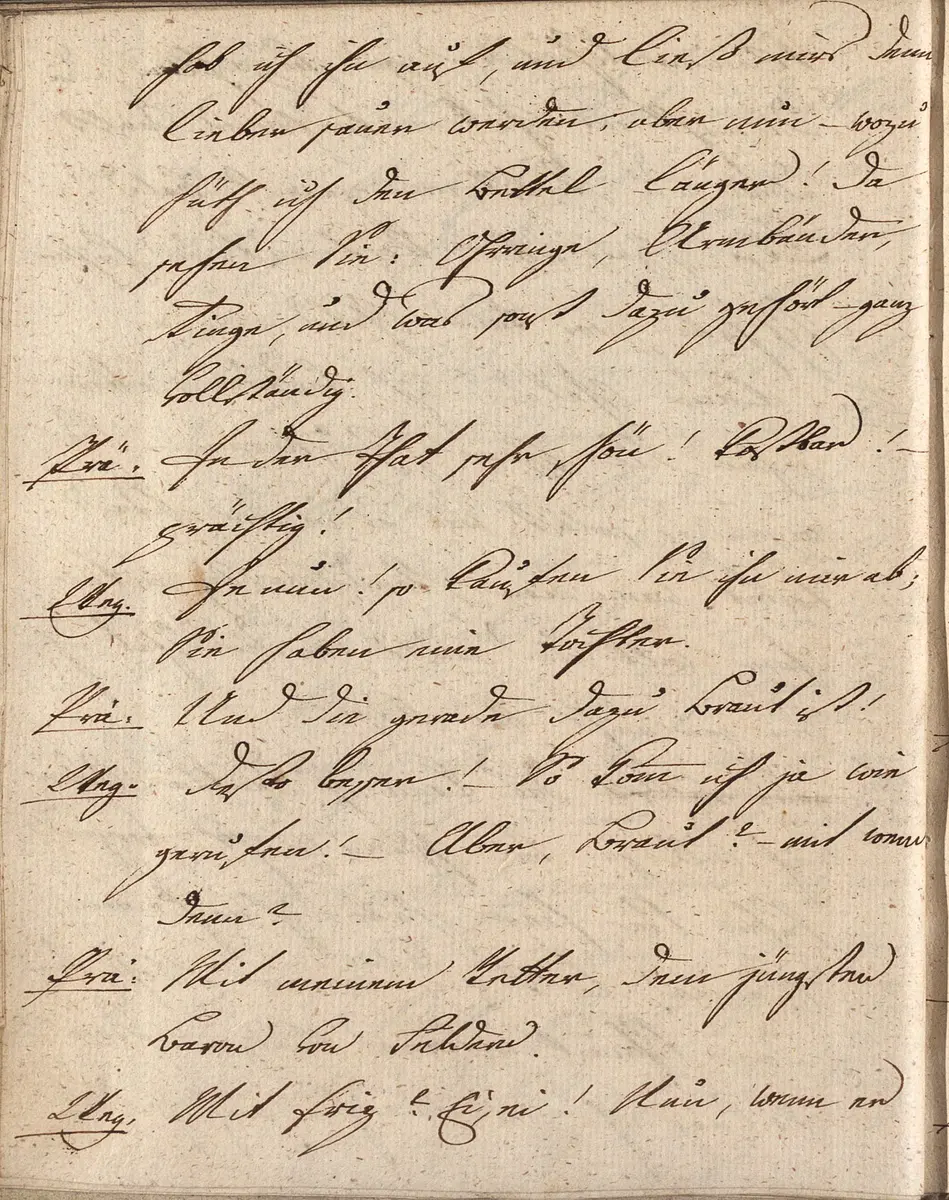 hob ich ihn auf, und ließ mirs denn
lieber sauer werden; aber nun – wozu
hüth ich den Bettel länger! Da
sehen Sie: Ohrringe, Armbänder,
Ringe, und was sonst dazu gehört – ganz
vollständig.
Prä: In der That sehr schön! kostbar! –
prächtig!
Je nun! so kauften Sie ihn mir ab;
Sie haben eine Tochter.
Prä: Und die gerade dazu Braut ist!
desto besser! – So kom̅ ich ja wie
gerufen! – Aber, Braut? – mit wem
denn?
Prä: Mit meinem Vetter, dem jüngsten
Baron von Seldern.
Mit Friz? Ei, ei! Nun, wenn er